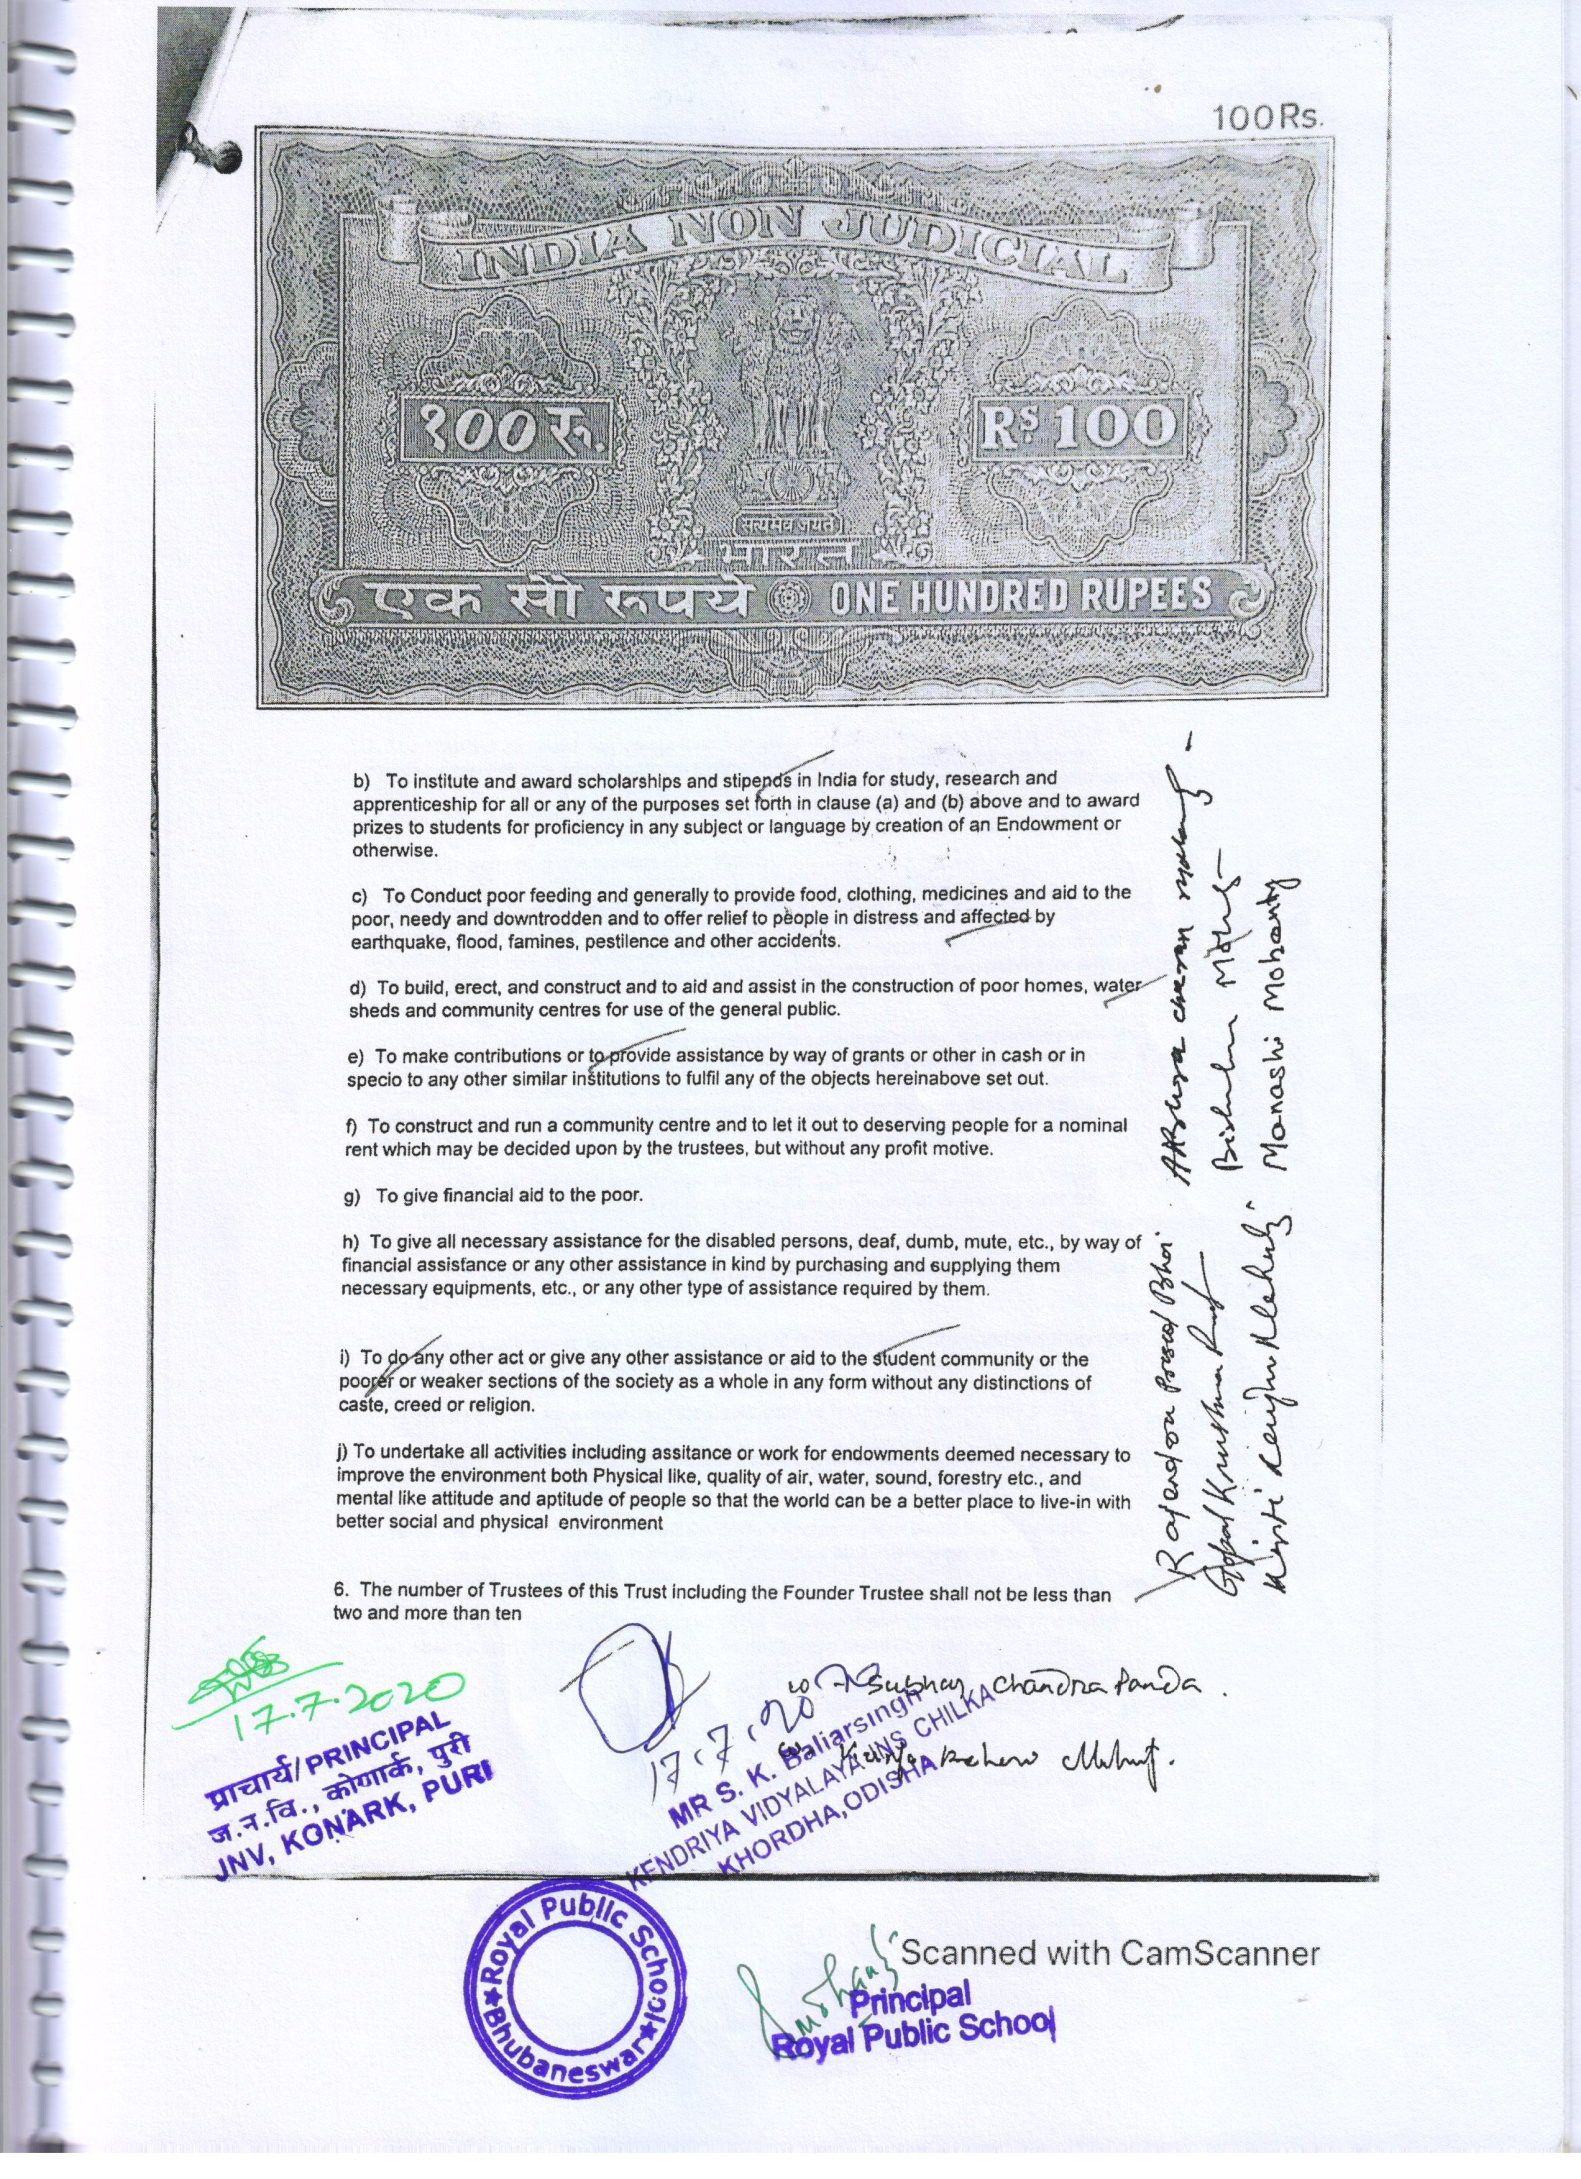 100Rs.
INDIA NON JUDICIAL
१00 रु.
Rs. 100
सत्यमेव जयते
भारत
एक सौ रुपये ONE HUNDRED RUPEES
b) To institute and award scholarships and stipends in India for study, research and
apprenticeship for all or any of the purposes set forth in clause (a) and (b) above and to award
prizes to students for proficiency in any subject or language by creation of an Endowment or
otherwise.
c) To Conduct poor feeding and generally to provide food, clothing, medicines and aid to the
poor, needy and downtrodden and to offer relief to people in distress and affected by
earthquake, flood, famines, pestilence and other accidents.
d) To build, erect, and construct and to aid and assist in the construction of poor homes, water
sheds and community centres for use of the general public.
e) To make contributions or to provide assistance by way of grants or other in cash or in
specio to any other similar institutions to fulfil any of the objects hereinabove set out.
f) To construct and run a community centre and to let it out to deserving people for a nominal
rent which may be decided upon by the trustees, but without any profit motive.
g) To give financial aid to the poor.
h) To give all necessary assistance for the disabled persons, deaf, dumb, mute, etc., by way of
financial assistance or any other assistance in kind by purchasing and supplying them
necessary equipments, etc., or any other type of assistance required by them.
i) To do any other act or give any other assistance or aid to the student community or the
poorer or weaker sections of the society as a whole in any form without any distinctions of
caste, creed or religion.
j) To undertake all activities including assitance or work for endowments deemed necessary to
improve the environment both Physical like, quality of air, water, sound, forestry etc., and
mental like attitude and aptitude of people so that the world can be a better place to live-in with
better social and physical environment
6. The number of Trustees of this Trust including the Founder Trustee shall not be less than
two and more than ten
Rajendra Prasad Bhoi
Gopal Krushna
Bishnu
Manashi Mohanty
17.7.2020
प्राचार्य/PRINCIPAL
ज.न.वि., कोणार्क, पुरी
JNV, KONARK, PURI
17.7.20
Subhas Chandra Panda.
MR S. K. Baliarsingh
KENDRIYA VIDYALAYA INS CHILKA
KHORDHA, ODISHA
Royal Public School
Bhubaneswar
Scanned with CamScanner
Principal
Royal Public School